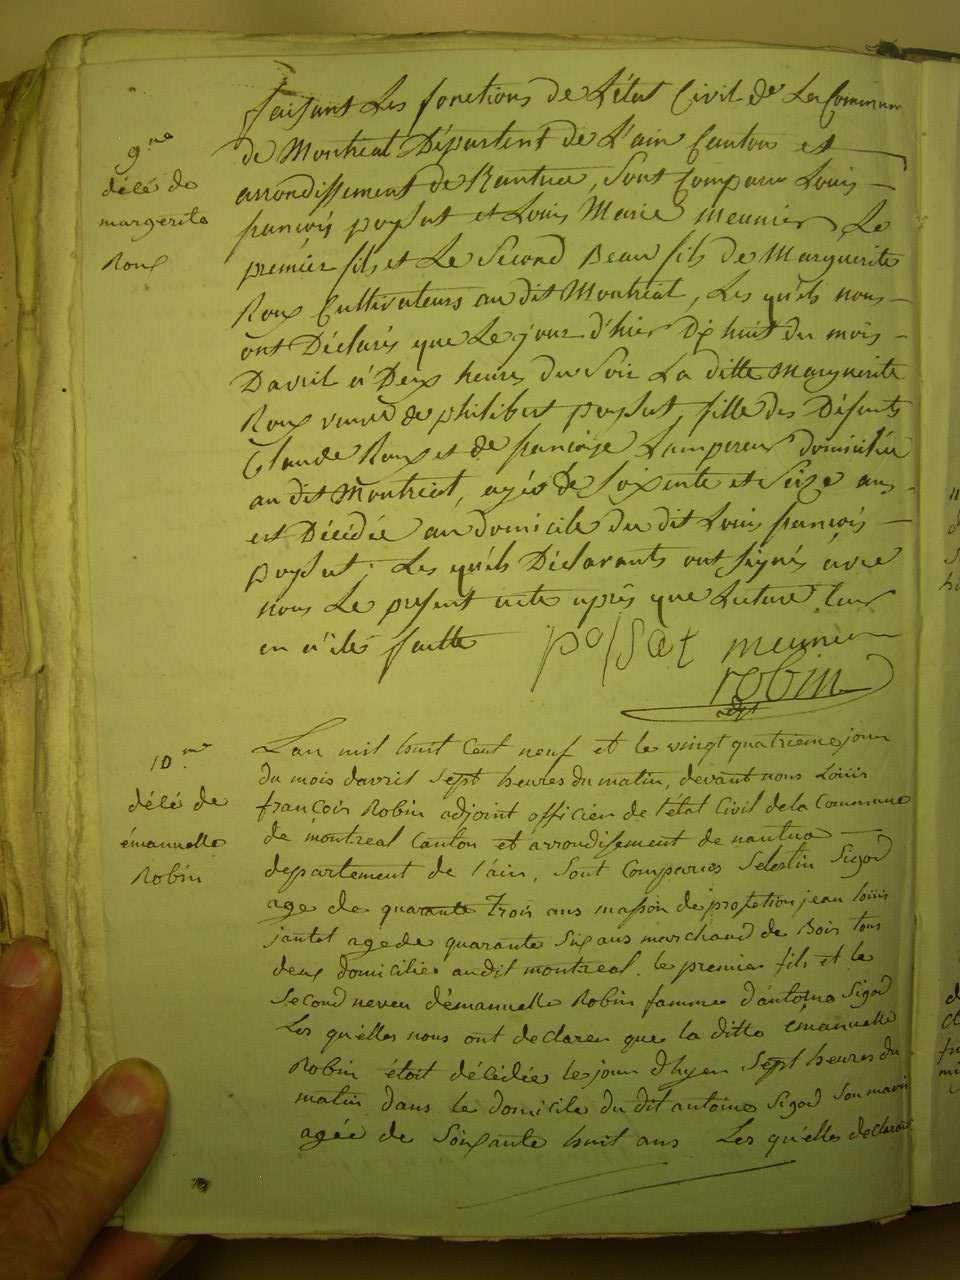 9.me
délé de
margerite
Roux
faisant Les fonctions de L'état Civil de La Commune
de Montreal Départent de L'ain Canton et
arrondissement de Nantua, sont Comparu Louis
francois poysat et Louis Marie meunier, Le
premier fils et Le Second Beau fils de Marguerite
Roux Cultivateurs au dit Montreal, Les qu'els nous
ont Déclarés que Le jour d'hier Dix huit du mois
Davril à Deux heures du Soir La ditte Marguerite
Roux veuve de philibert poysat, fille des Défunts
Claude Roux et de francoise Lempereur domiciliée
au dit Montreal, agée de Soixente et Seize ans
est Décédée au domicile du dit Louis francois
poysat; Les qu'els Déclarants ont signés avec
nous Le present acte après que Lecture leur
en a étés faitte
poysat meunier
robin
adjt
10.me
délé de
émanuelle
Robin
L'an mil huit Cent neuf et le vingt quatrieme jour
du mois davril sept heures du matin, devant nous Loüis
francois Robin adjoint officier de l'etat Civil de la Commune
de montreal Canton et arrondisement de nantua
departement de l'ain, sont Comparus Selestin Sigod
age de quarante trois ans masson de profetion jean loüis
jantet age de quarante Six ans marchand de Bois tous
deux domicilies audit montreal. le premier fils et le
Second neveu d'émanuelle Robin famme d'antoine Sigod
Les qu'elles nous ont declarer que la ditte émanuelle
Robin étoit décédée le jour d'hyer Sept heures du
matin dans le domicile du dit antoine Sigod son marit
agée de Soixante huit ans Les qu'elles declarants